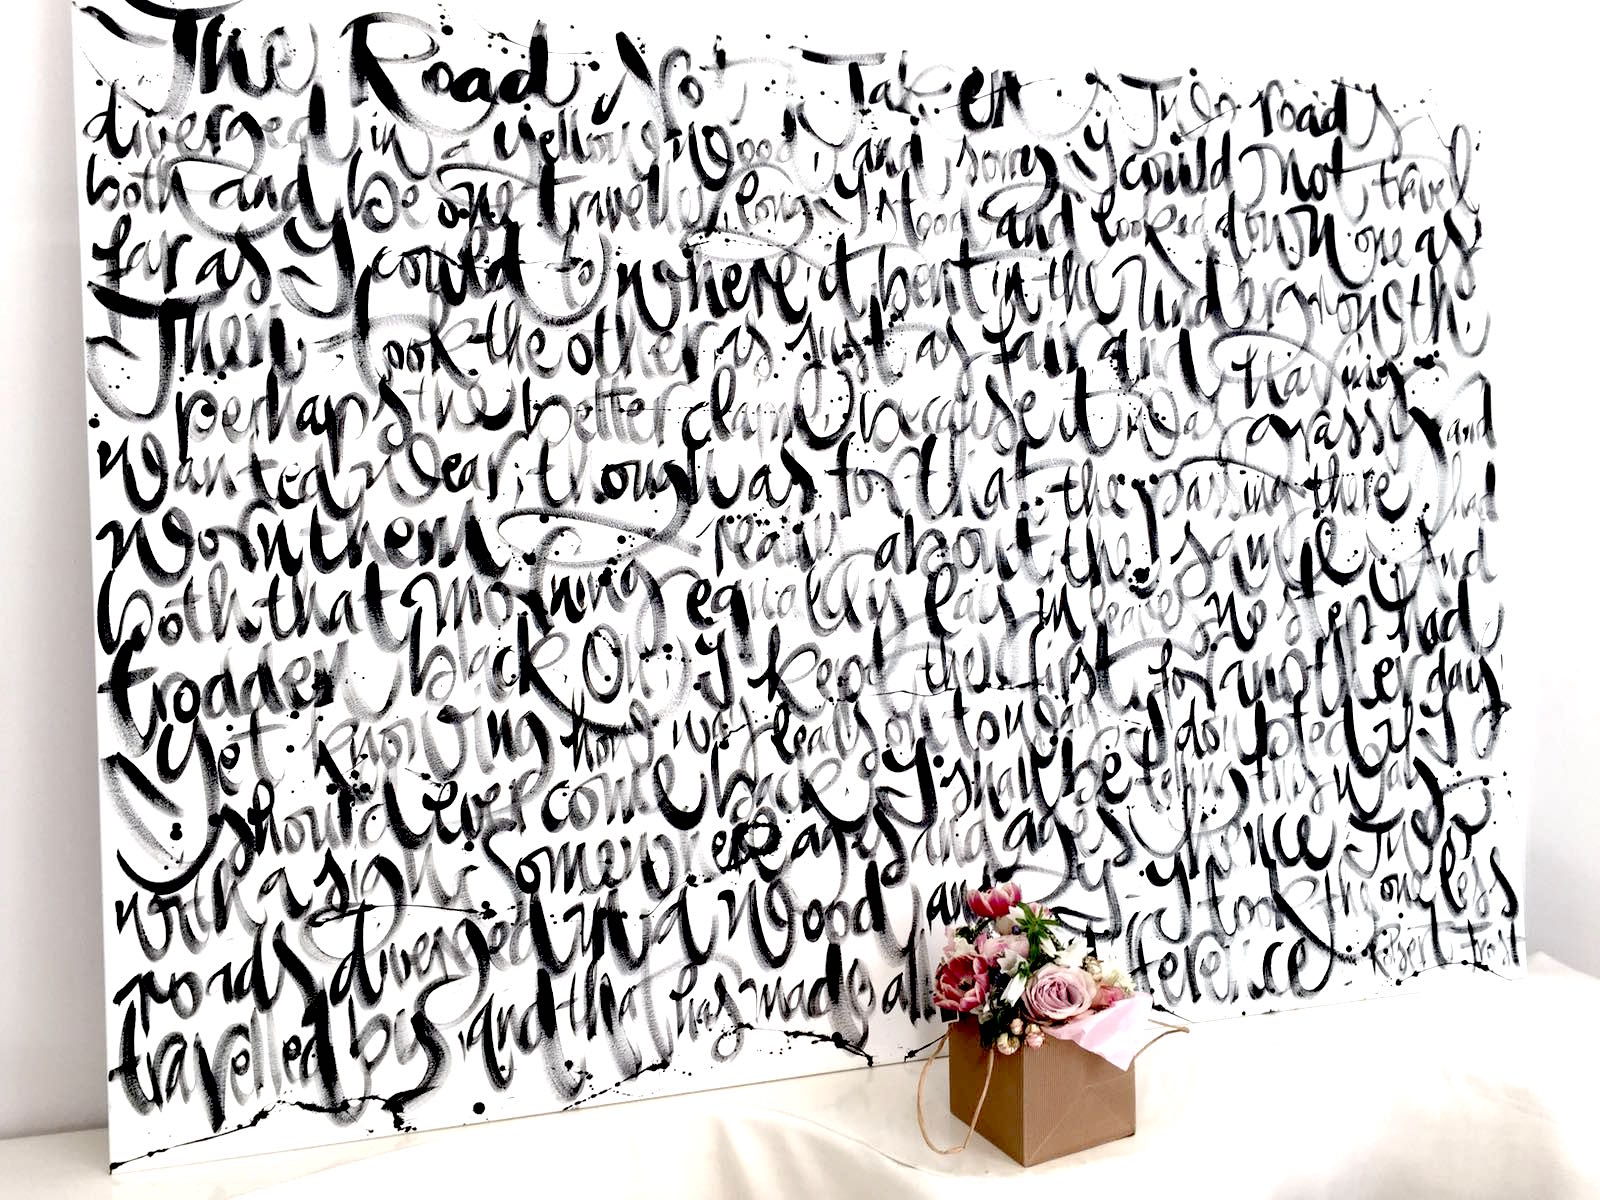 The Road Not Taken Two roads
diverged in a yellow wood, and sorry I could not travel
both and be one traveller, long I stood and looked down one as
far as I could to where it bent in the undergrowth.
Then took the other as just as fair and having
perhaps the better claim because it was grassy and
wanted wear, though as for that the passing there had
worn them really about the same And
both that morning equally lay in leaves no step had
trodden black Oh, I kept the first for another day
Yet knowing how way leads on to way I doubted if I
should ever come back I shall be telling this
with a sigh Somewhere ages and ages hence Two
roads diverged in a wood and I I took the one less
travelled by and that has made all ference Robert Frost